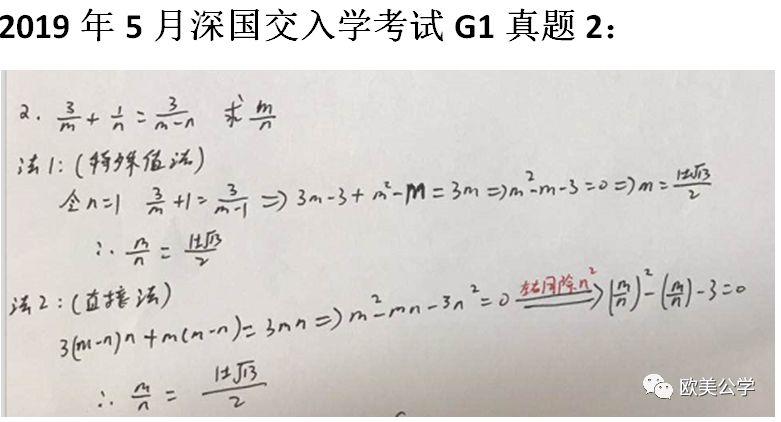 2019 年 5 月深国交入学考试 G1 真题 2：
2. 3/m + 1/n = 3/(m-n) 求 m/n
法1: (特殊值法)
令n=1 3/m +1 = 3/(m-1) => 3m-3+m²-m=3m => m²-m-3=0 => m= (1±√13)/2
∴ m/n = (1±√13)/2
法2: (直接法)
3(m-n)n+m(m-n)=3mn => m²-mn-3n²=0 左右同除n² => (m/n)²-(m/n)-3=0
∴ m/n = (1±√13)/2
欧美公学